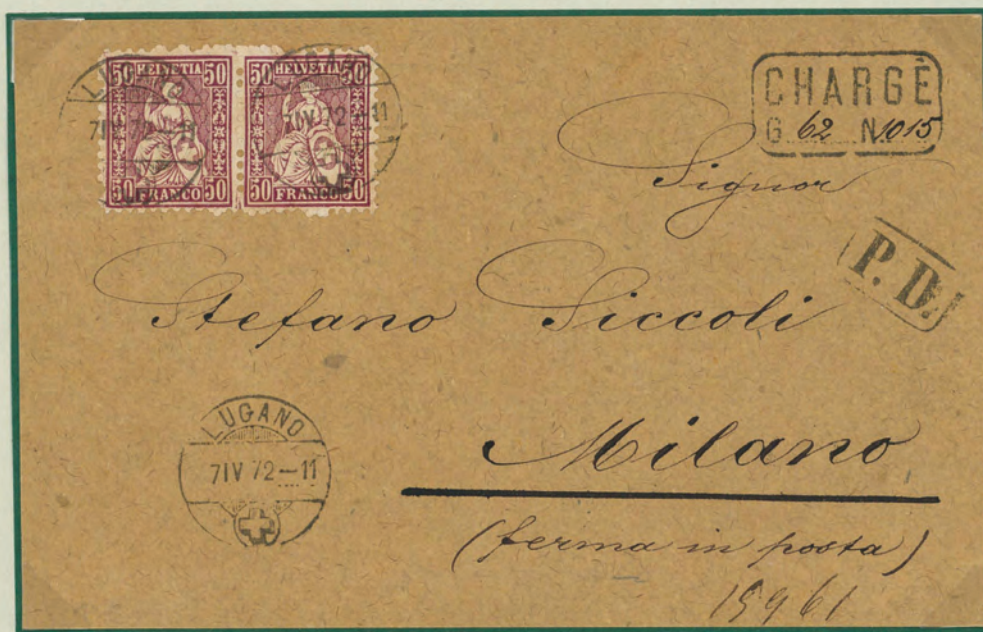 50 HELVETIA 50
50 FRANCO 50
50 HELVETIA 50
50 FRANCO 50
LUGANO
7 IV 72-11
LUGANO
7 IV 72-11
CHARGÉ
G. 62 N. 1015
Signor
P.D.
Stefano Siccoli
LUGANO
7 IV 72-11
Milano
(ferma in posta)
15961